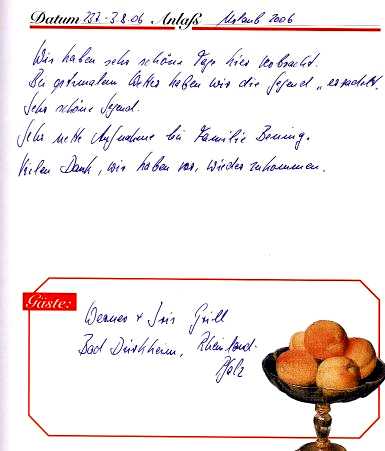 Datum 23.7.-3.8.06 Anlaß Urlaub 2006
Wir haben sehr schöne Tage hier verbracht.
Bei optimalem Wetter haben wir die Gegend "erradelt".
Sehr schöne Gegend.
Sehr nette Aufnahme bei Familie Benning.
Vielen Dank, wir haben vor, wiederzukommen.
Gäste:
Werner + Iris Grill
Bad Dürkheim, Rheinland-
Pfalz